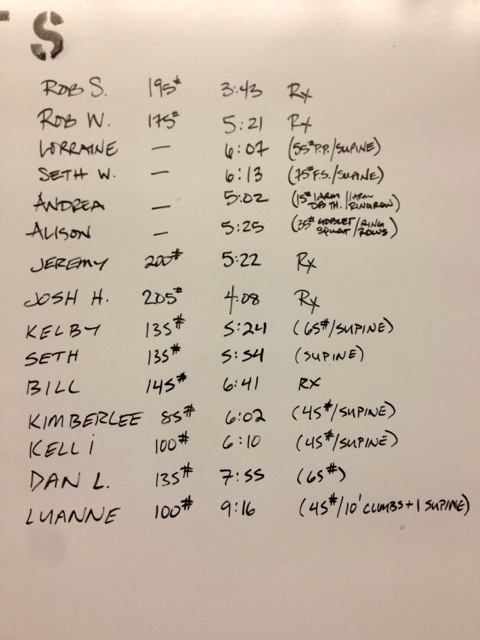 S
ROB S. 195# 3:43 Rx
ROB W. 175# 5:21 Rx
LORRAINE — 6:07 (55# P.P./SUPINE)
SETH W. — 6:13 (75# F.S./SUPINE)
ANDREA — 5:02 (15# 1 ARM DB TH./1 ARM RING ROW)
ALISON — 5:25 (35# GOBLET SQUAT/RING ROWS)
JEREMY 200# 5:22 Rx
JOSH H. 205# 4:08 Rx
KELBY 135# 5:24 (65#/SUPINE)
SETH 135# 5:54 (SUPINE)
BILL 145# 6:41 RX
KIMBERLEE 85# 6:02 (45#/SUPINE)
KELLi 100# 6:10 (45#/SUPINE)
DAN L. 135# 7:55 (65#)
LUANNE 100# 9:16 (45#/10' CLIMBS + 1 SUPINE)